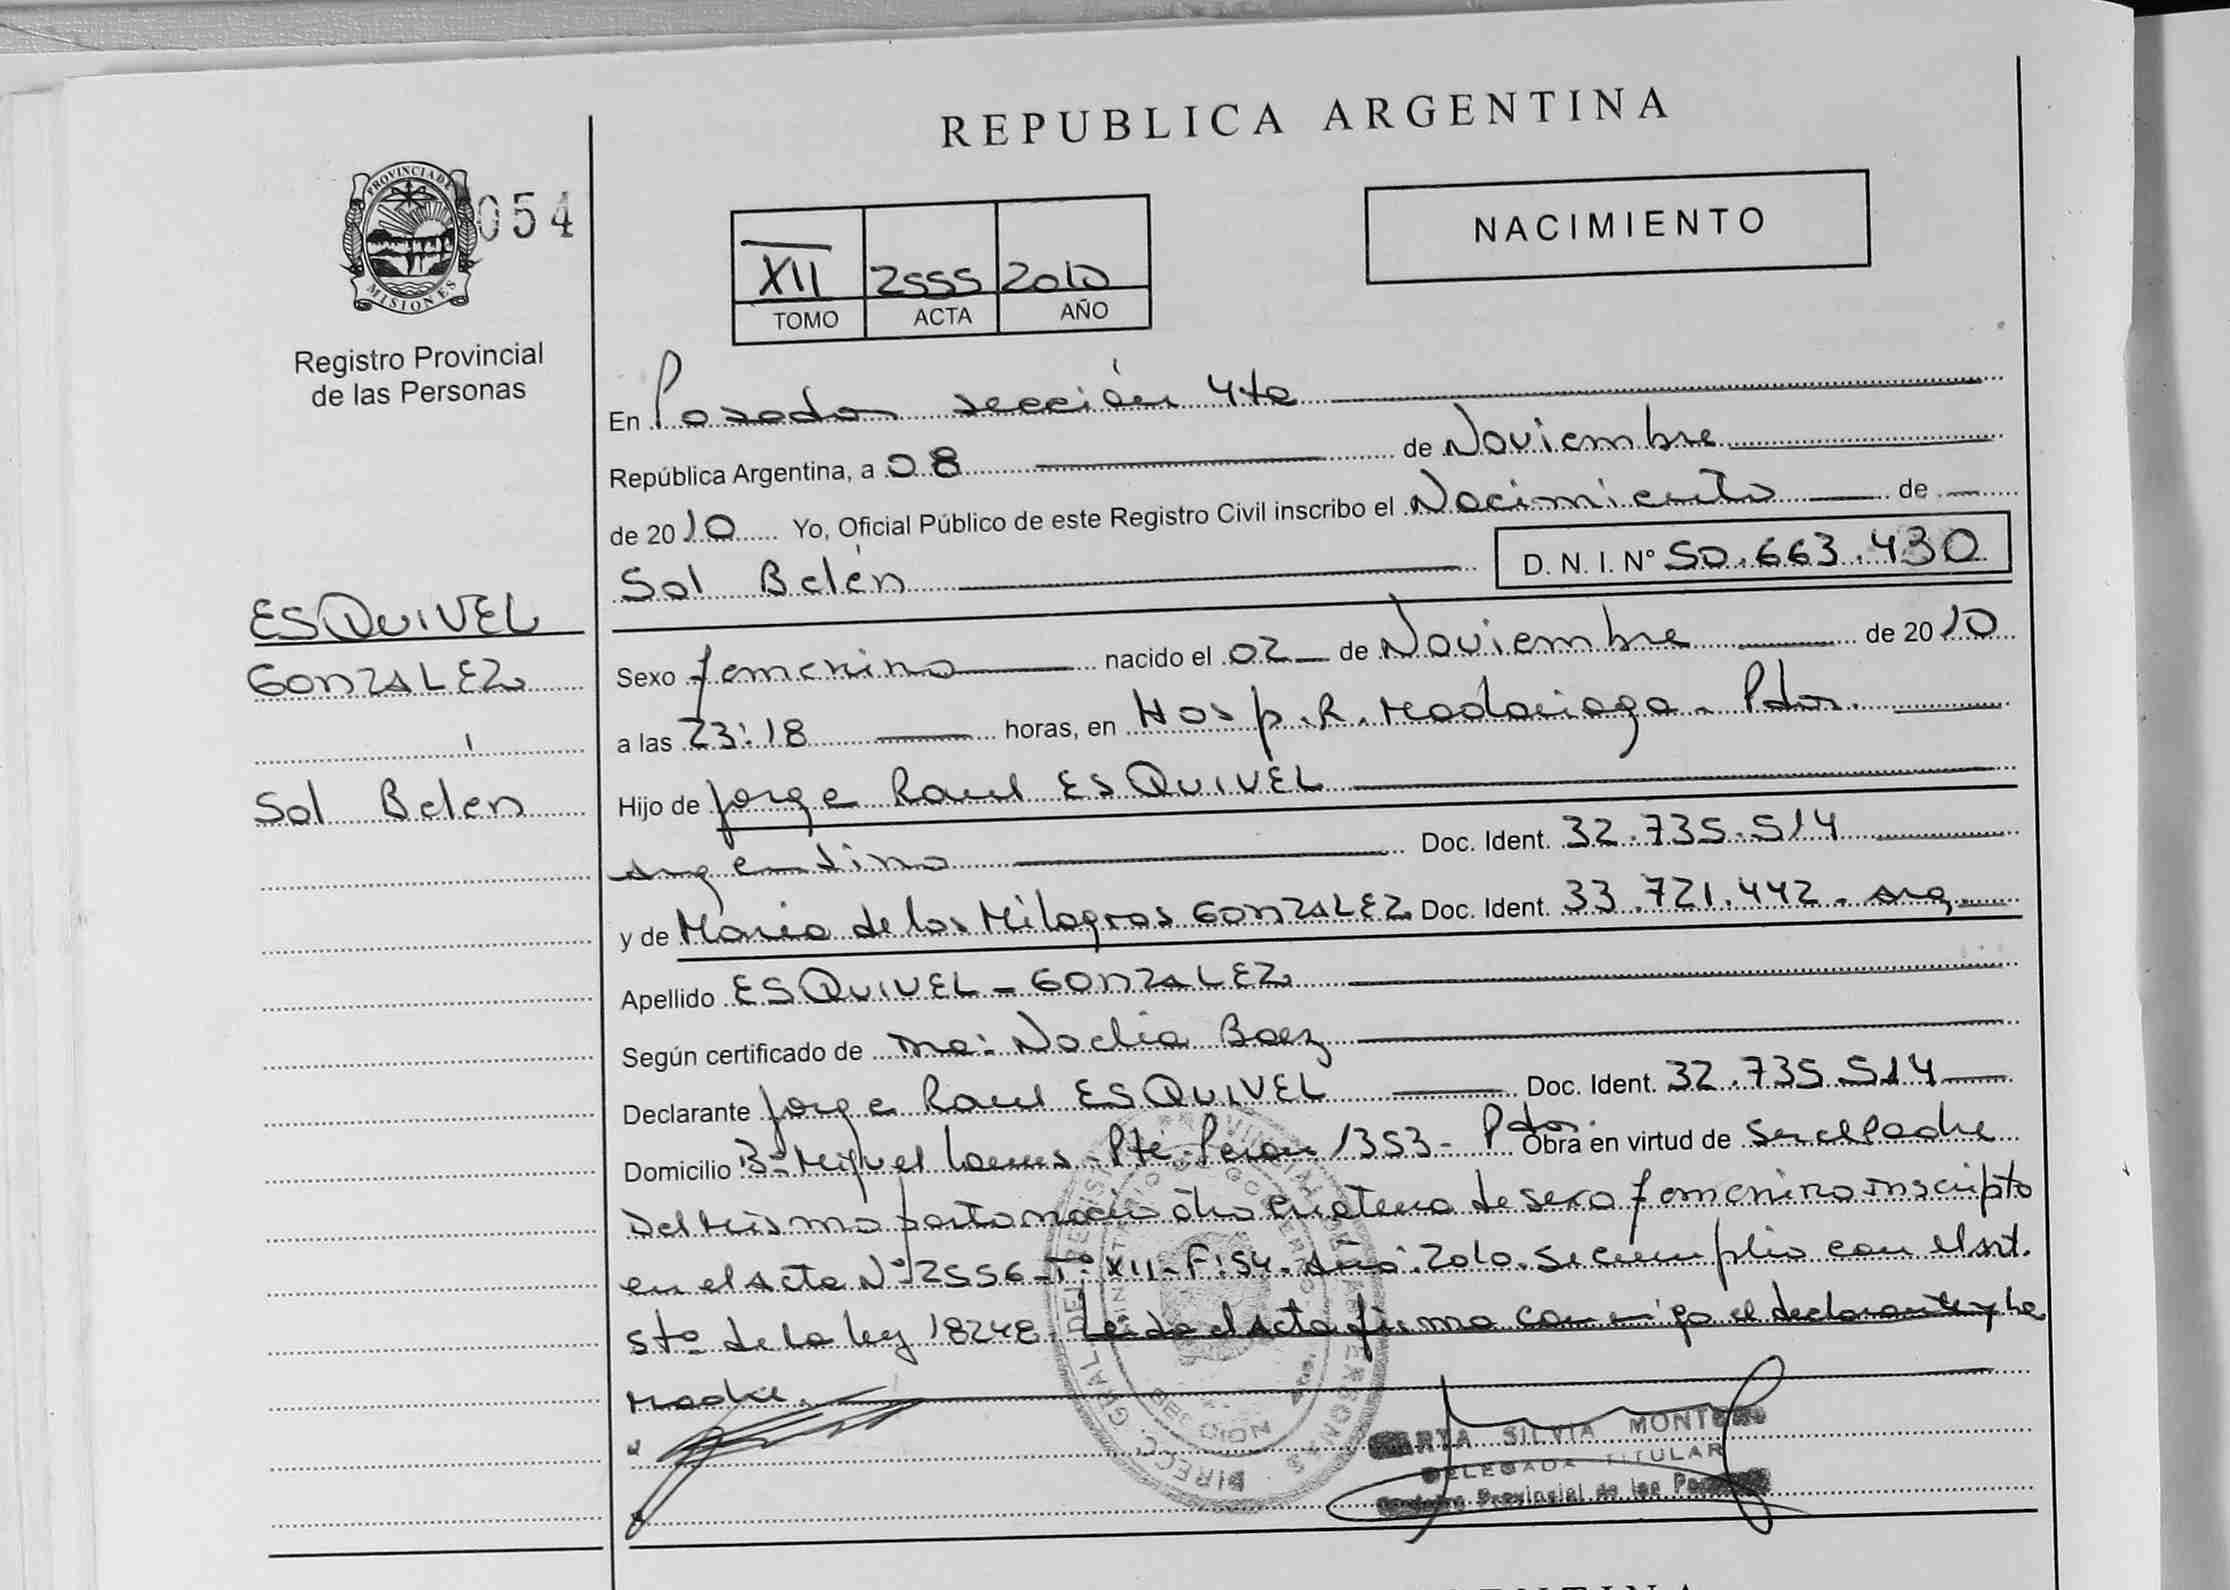 REPUBLICA ARGENTINA
PROVINCIA DE
MISIONES
054
Registro Provincial
de las Personas
NACIMIENTO
XII 2555 2010
TOMO ACTA AÑO
En Posadas sección 4ta
República Argentina, a 08 de Noviembre
de 2010 Yo, Oficial Público de este Registro Civil inscribo el Nacimiento de
Sol Belén D. N. I. N° 50.663.430
ESQUIVEL
GONZALEZ
Sol Belén
Sexo femenino nacido el 02 de Noviembre de 2010
a las 23:18 horas, en Hosp. R. Madariaga - Pdas.
Hijo de Jorge Raul ESQUIVEL
argentino Doc. Ident. 32.735.514
y de Maria de los Milagros GONZALEZ Doc. Ident. 33.721.442. arg.
Apellido ESQUIVEL - GONZALEZ
Según certificado de Noelia Baez
Declarante Jorge Raul ESQUIVEL Doc. Ident. 32.735.514
Domicilio B° Miguel Lanus - Pte. Peron 1353 - Pdas. Obra en virtud de ser el Padre
Del mismo parto nació otra criatura de sexo femenino inscripto
en el acta N° 2556 - T° XII - F: 54 - Año: 2010. Se cumplio con el art.
5to de la ley 18248. Leida el acta firma conmigo el declarante y la
Madre.
MARTA SILVIA MONTERO
DELEGADA TITULAR
Registro Provincial de las Personas